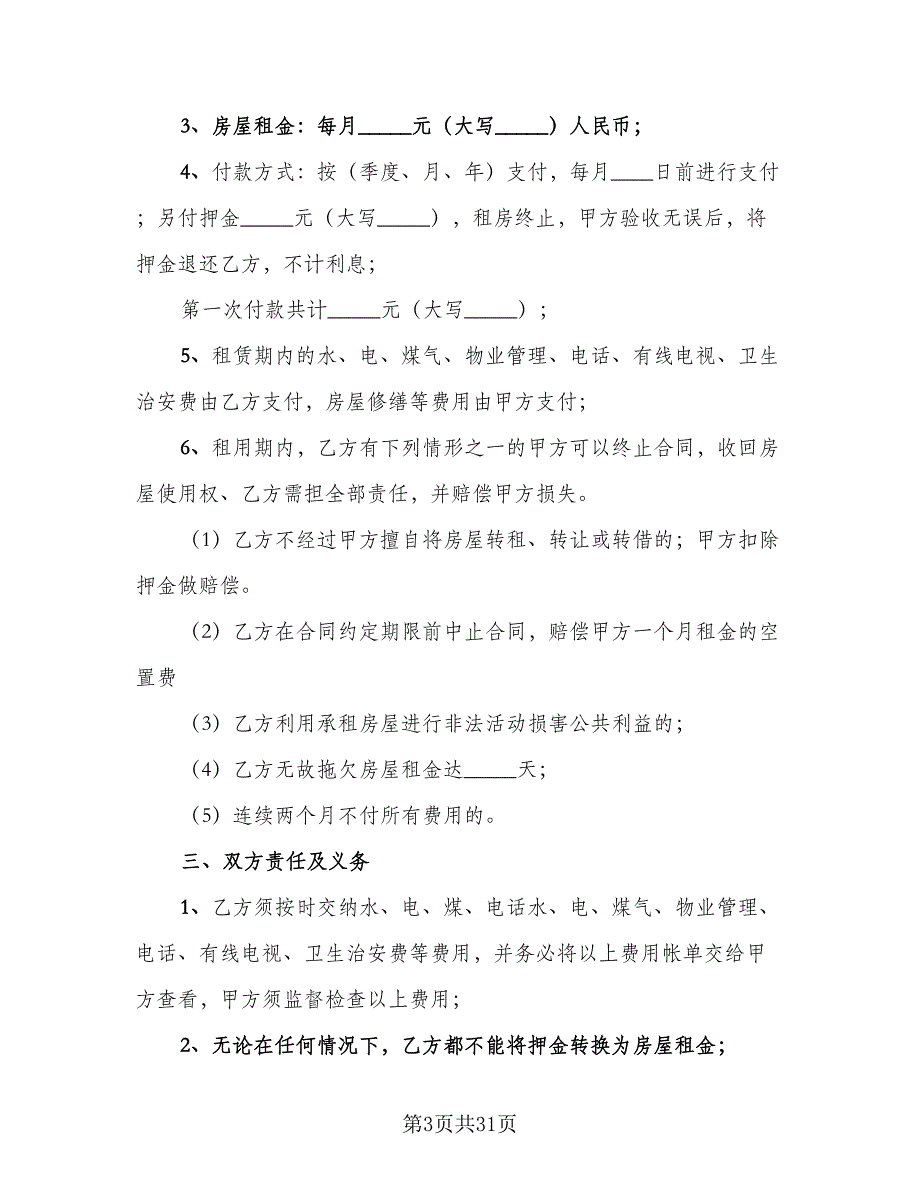 3、房屋租金：每月_____元（大写_____）人民币；
4、付款方式：按（季度、月、年）支付，每月____日前进行支付
；另付押金_____元（大写_____），租房终止，甲方验收无误后，将
押金退还乙方，不计利息；
第一次付款共计_____元（大写_____）；
5、租赁期内的水、电、煤气、物业管理、电话、有线电视、卫生
治安费由乙方支付，房屋修缮等费用由甲方支付；
6、租用期内，乙方有下列情形之一的甲方可以终止合同，收回房
屋使用权、乙方需担全部责任，并赔偿甲方损失。
（1）乙方不经过甲方擅自将房屋转租、转让或转借的；甲方扣除
押金做赔偿。
（2）乙方在合同约定期限前中止合同，赔偿甲方一个月租金的空
置费
（3）乙方利用承租房屋进行非法活动损害公共利益的；
（4）乙方无故拖欠房屋租金达_____天；
（5）连续两个月不付所有费用的。
三、双方责任及义务
1、乙方须按时交纳水、电、煤、电话水、电、煤气、物业管理、
电话、有线电视、卫生治安费等费用，并务必将以上费用帐单交给甲
方查看，甲方须监督检查以上费用；
2、无论在任何情况下，乙方都不能将押金转换为房屋租金；
第3页共31页